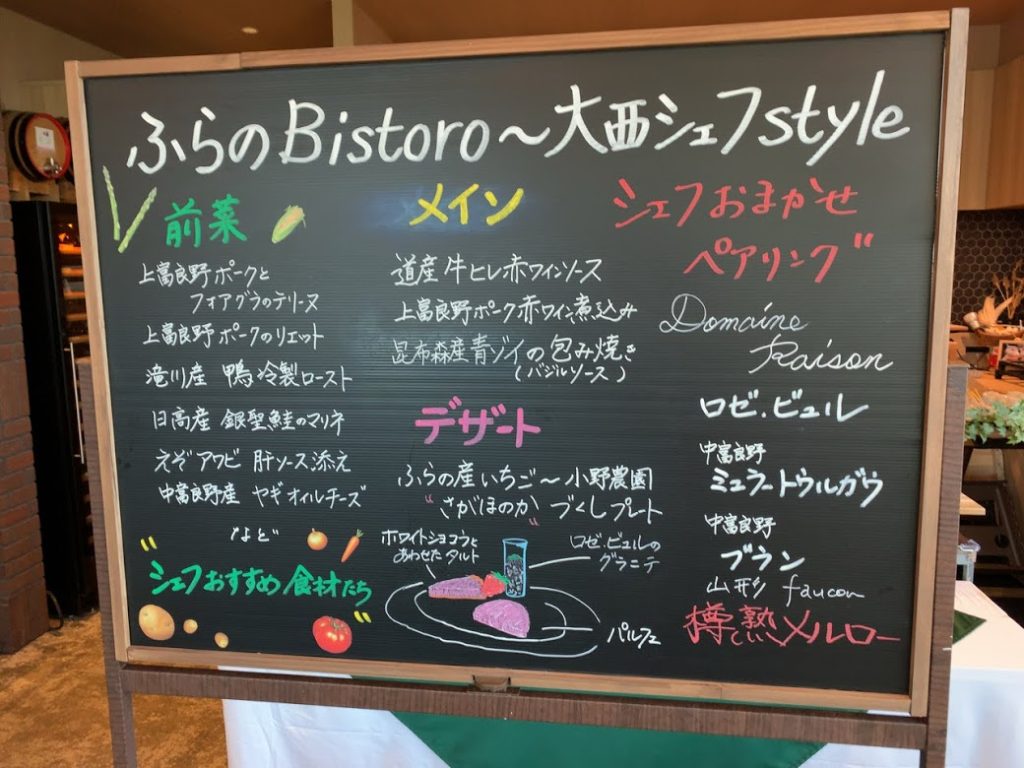 ふらのBistoro～大西シェフstyle
前菜
上富良野ポークと
フォアグラのテリーヌ
上富良野ポークのリエット
滝川産 鴨冷製ロースト
日高産 銀聖鮭のマリネ
えぞアワビ 肝ソース添え
中富良野産 ヤギオイルチーズ
など
"シェフおすすめ食材たち"
メイン
道産牛ヒレ赤ワインソース
上富良野ポーク赤ワイン煮込み
昆布森産青ゾイの包み焼き
(バジルソース)
デザート
ふらの産いちご～小野農園
"さがほのか"づくしプレート
ホワイトショコラと
あわせたタルト
ロゼ.ビュルの
グラニテ
パルフェ
シェフおまかせ
ペアリング"
Domaine
Raison
ロゼ.ビュル
中富良野
ミュラートゥルガウ
中富良野
ブラン
山形 faucon
樽熟メルロー